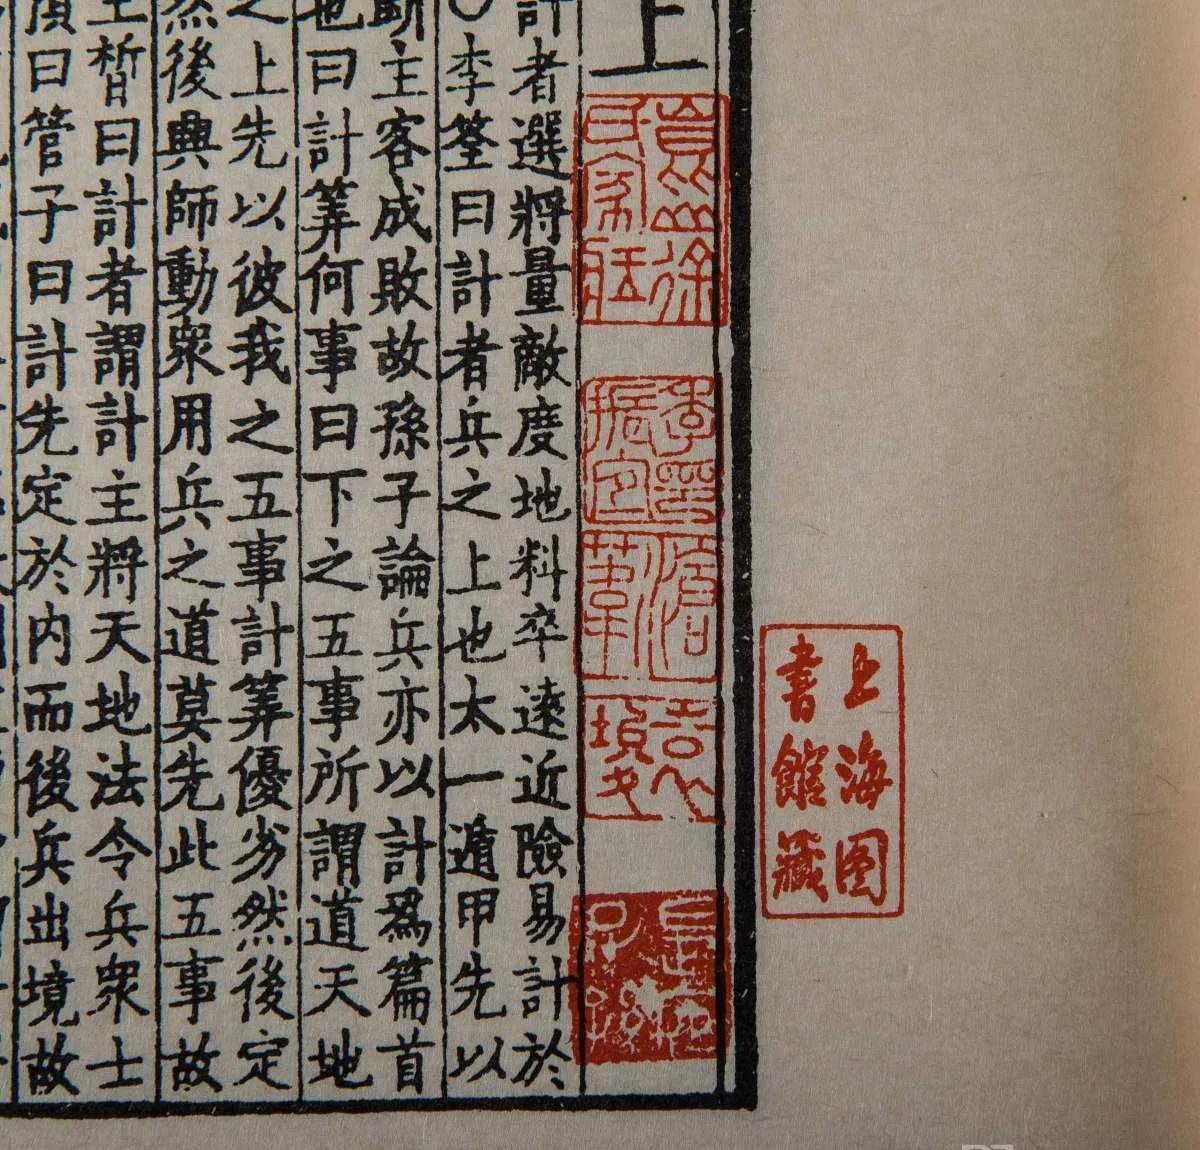 上海图
書館藏
上
崑山徐
氏家藏
季印
振宜
滄
葦
計者選將量敵度地料卒遠近險易計於
○李筌曰計者兵之上也太一遁甲先以
斷主客成敗故孫子論兵亦以計爲篇首
也曰計筭何事曰下之五事所謂道天地
之上先以彼我之五事計筭優劣然後定
然後興師動衆用兵之道莫先此五事故
王晳曰計者謂計主將天地法令兵衆士
預曰管子曰計先定於内而後兵出境故